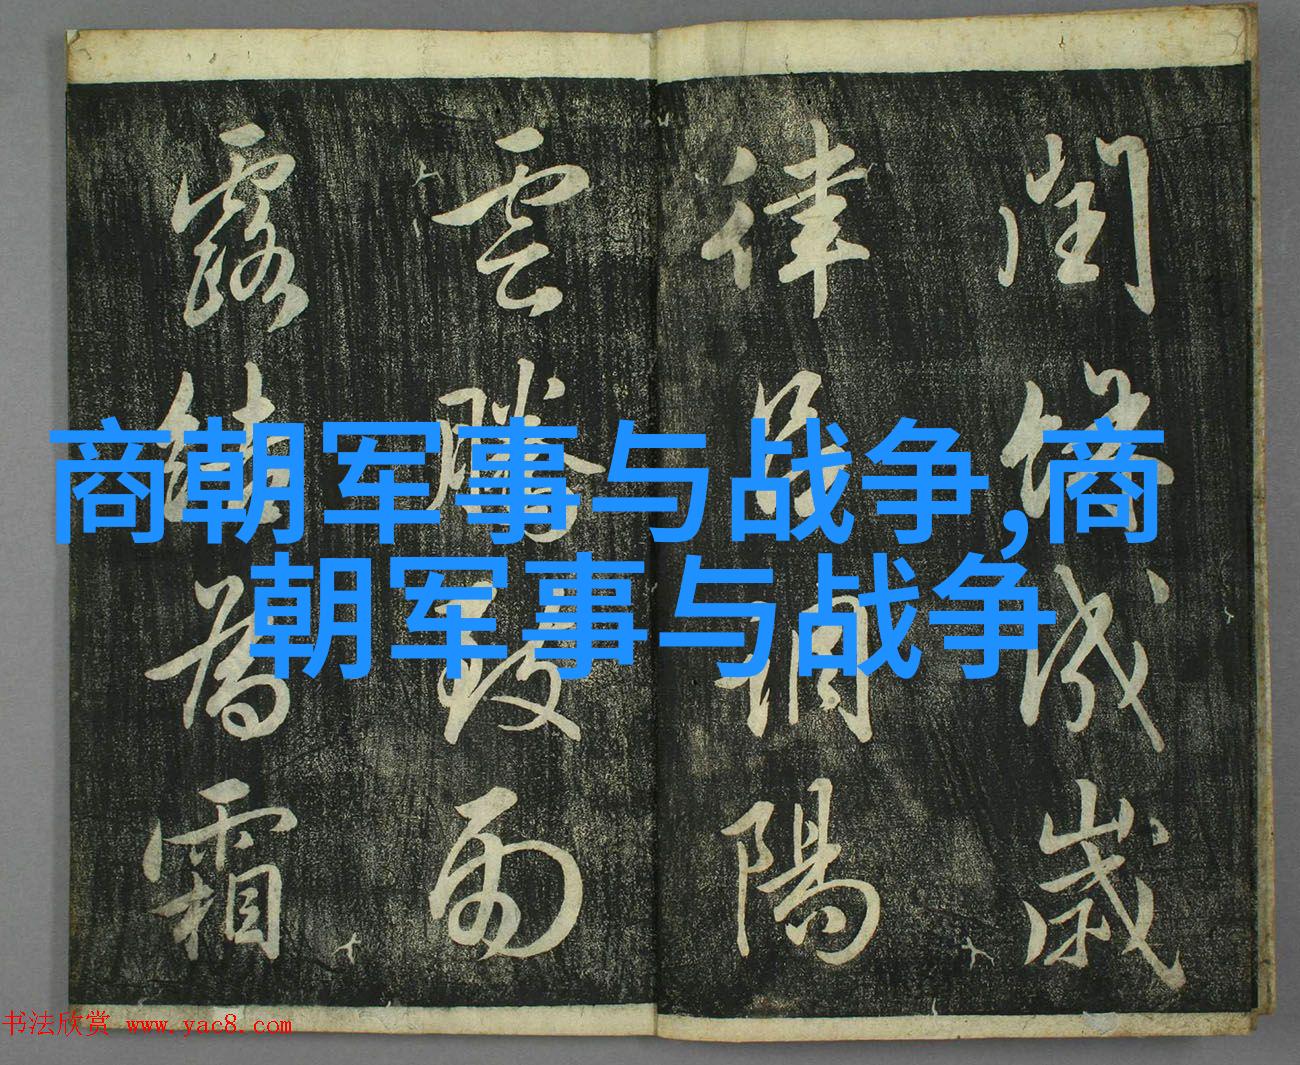 閏餘成歲
律呂調陽
雲騰致雨
露結為霜
商朝军事与战争,商
朝军事与战争
书法欣赏 www.yac8.com